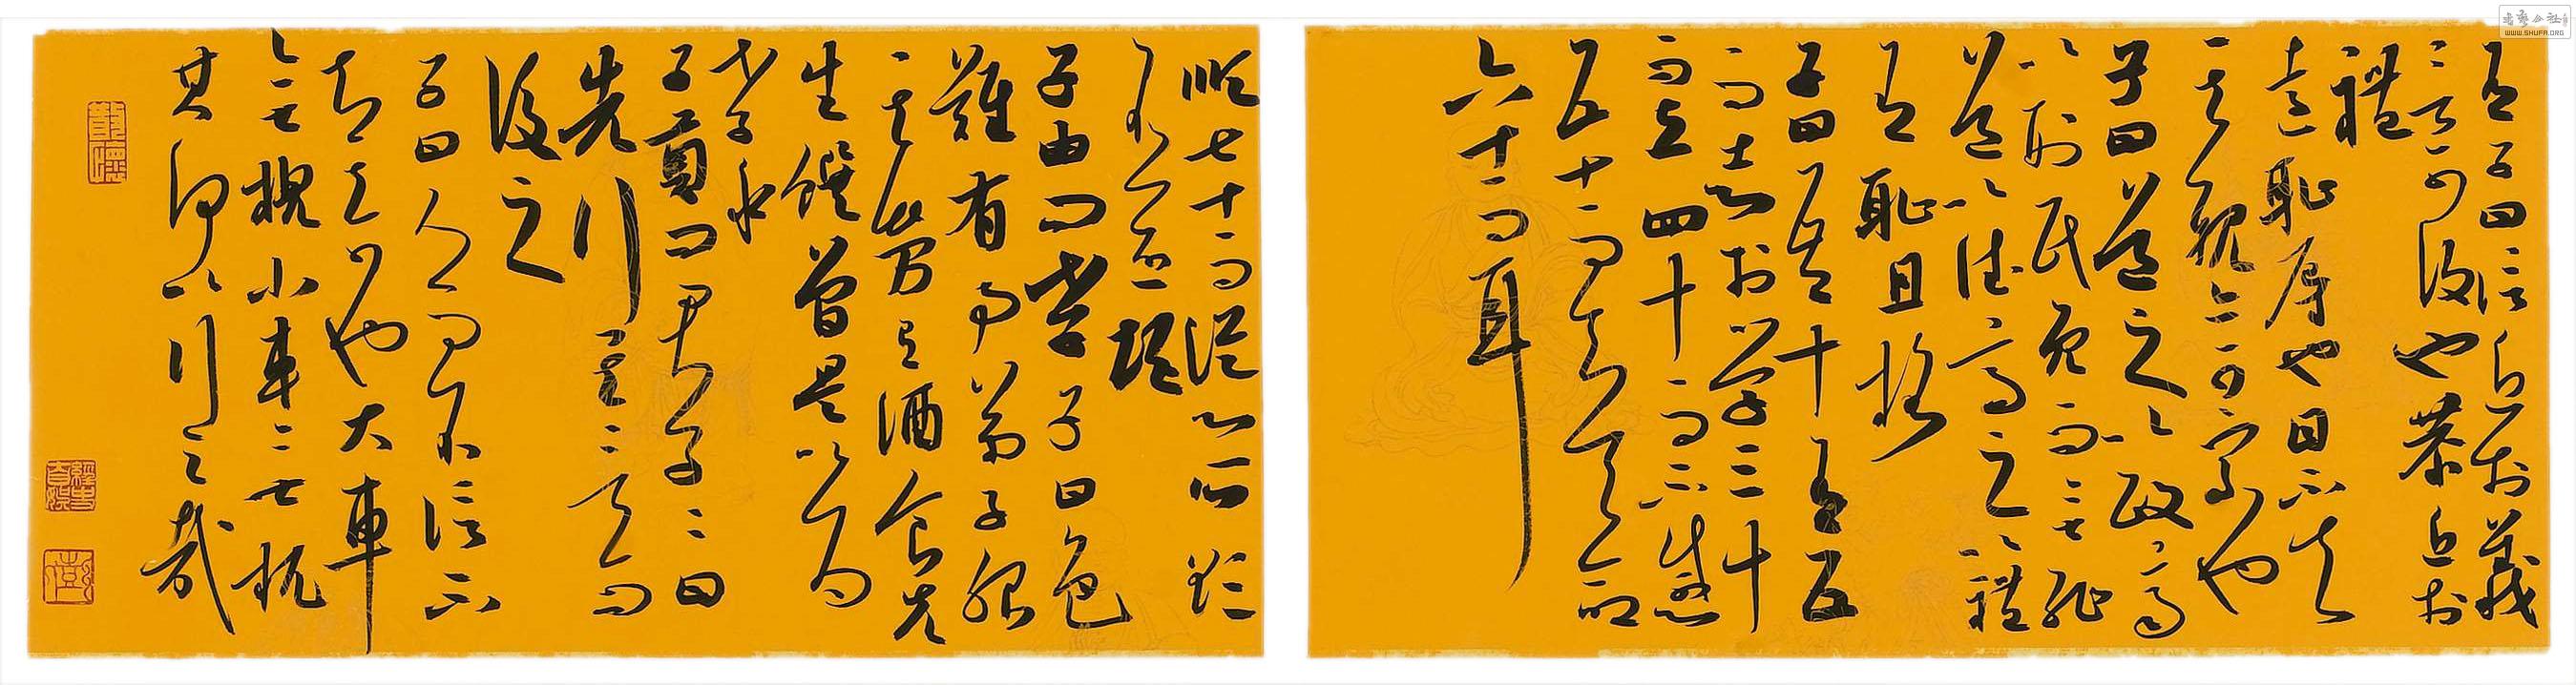 有子曰信近於義
言可復也恭近於
禮
遠恥辱也因不失
其親亦可宗也
子曰道之以政齊
之以刑民免而無恥
道之以德齊之以禮
有恥且格
子曰吾十有五
而志於学三十
而立四十而不惑
五十而知天命
六十而耳
順七十而從心所欲
不踰矩
子曰色
難有事弟子服
其勞有酒食先
生饌曾是以為
孝乎
子貢問君子子曰
先行其言而
後之
子曰人而無信不
知其可也大車
無輗小車無軏
其何以行之哉
WWW.SHUFA.ORG